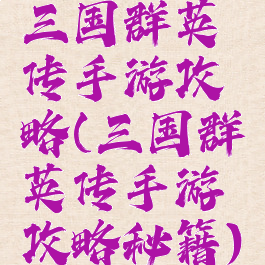 三国群英
传手游攻
略(三国群
英传手游
攻略秘籍)